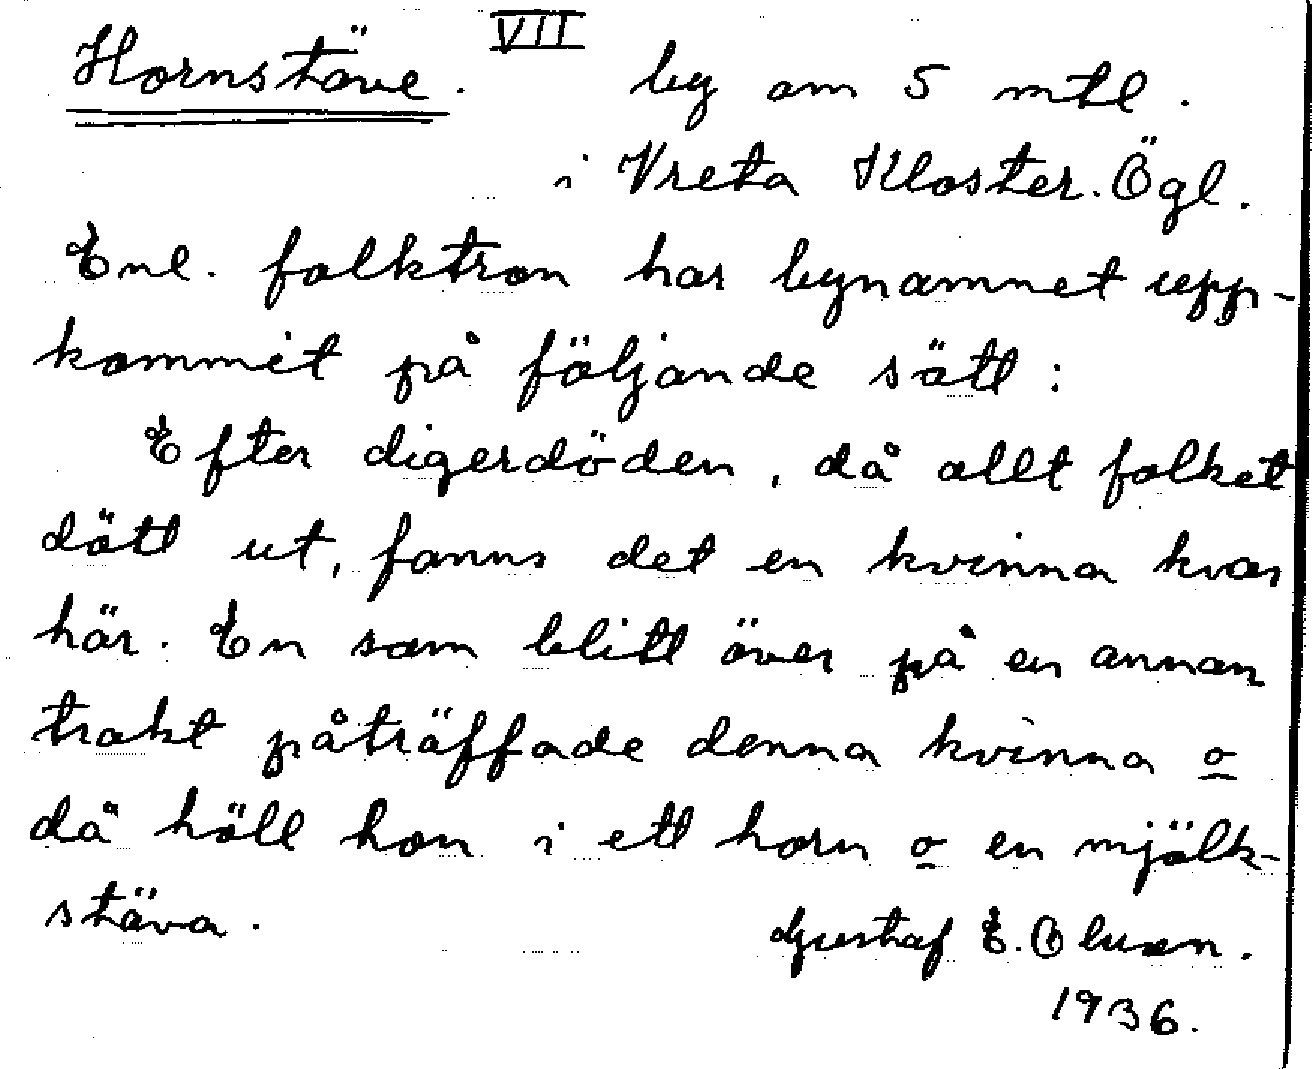 Hornstäve. VII by om 5 mtl.
i Vreta Kloster. Ögl.
Enl. folktron har bynamnet upp-
kommit på följande sätt:
Efter digerdöden, då allt folket
dött ut, fanns det en kvinna kvar
här. En som blitt över på en annan
trakt påträffade denna kvinna o
då höll hon i ett horn o en mjölk-
stäva.
Gustaf E. Olusen.
1936.